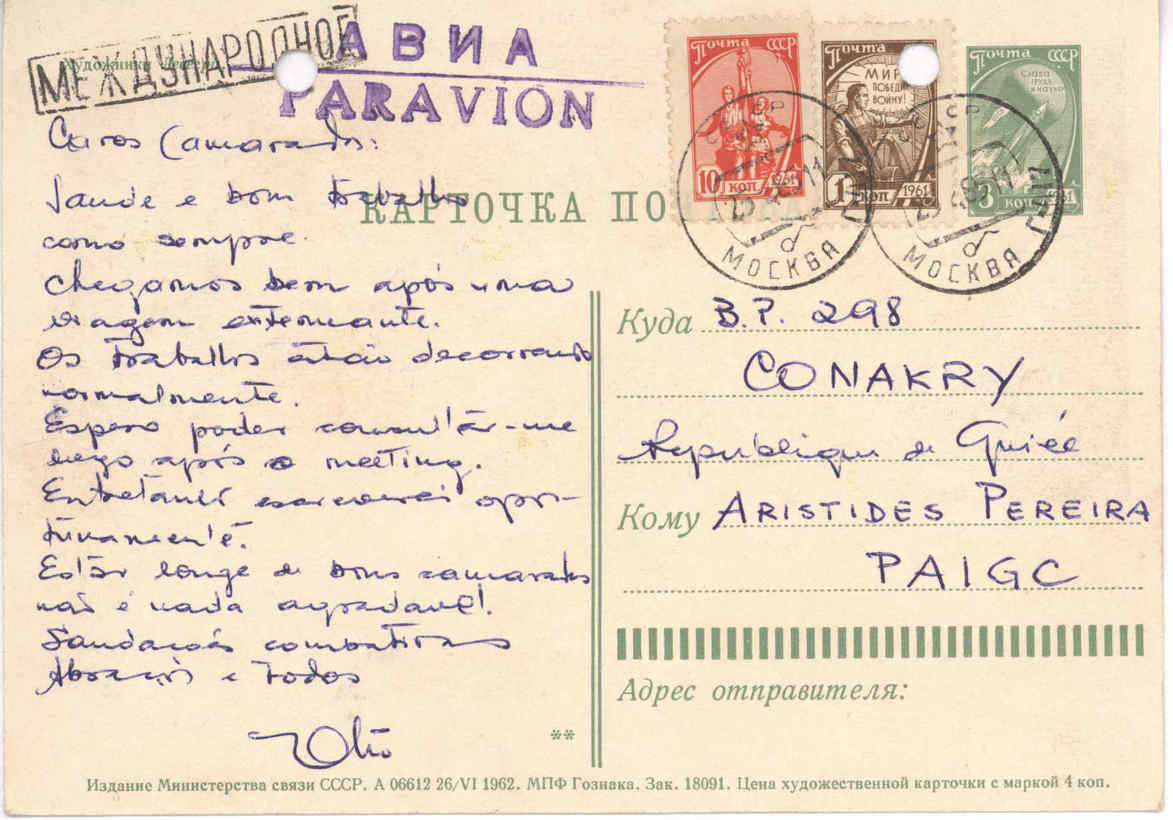 МЕЖДУНАРОДНОЕ
АВИА
PARAVION
Художники
Почта СССР
10 коп 1961
Почта СССР
МИР
ПОБЕДИТ
ВОЙНУ!
1 коп 1961
Почта СССР
Слава
труду
и науке
3 коп
МОСКВА
МОСКВА
КАРТОЧКА
Caros Camaradas:
Saude e bom trabalho
como sempre.
Chegamos bem após uma
viagem extenuante.
Os trabalhos estão decorrendo
normalmente.
Espero poder consultar-me
logo após o meeting.
Entretanto escreverei opor-
tunamente.
Estar longe de bons camaradas
não é nada agradavel!
Saudações combativas
Abraços a todos
Куда B.P. 298
CONAKRY
Republique de Guiée
Кому ARISTIDES PEREIRA
PAIGC
Адрес отправителя:
**
Издание Министерства связи СССР. А 06612 26/VI 1962. МПФ Гознака. Зак. 18091. Цена художественной карточки с маркой 4 коп.